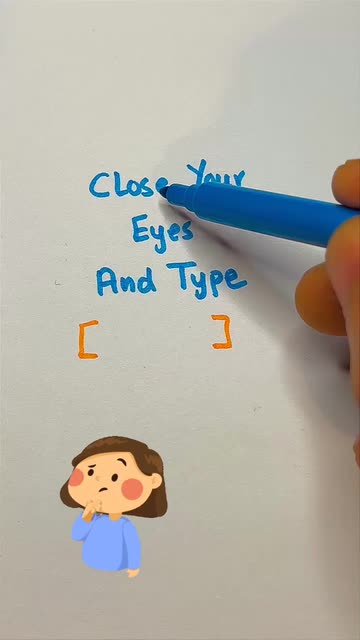 Close Your
Eyes
And Type
[ ]